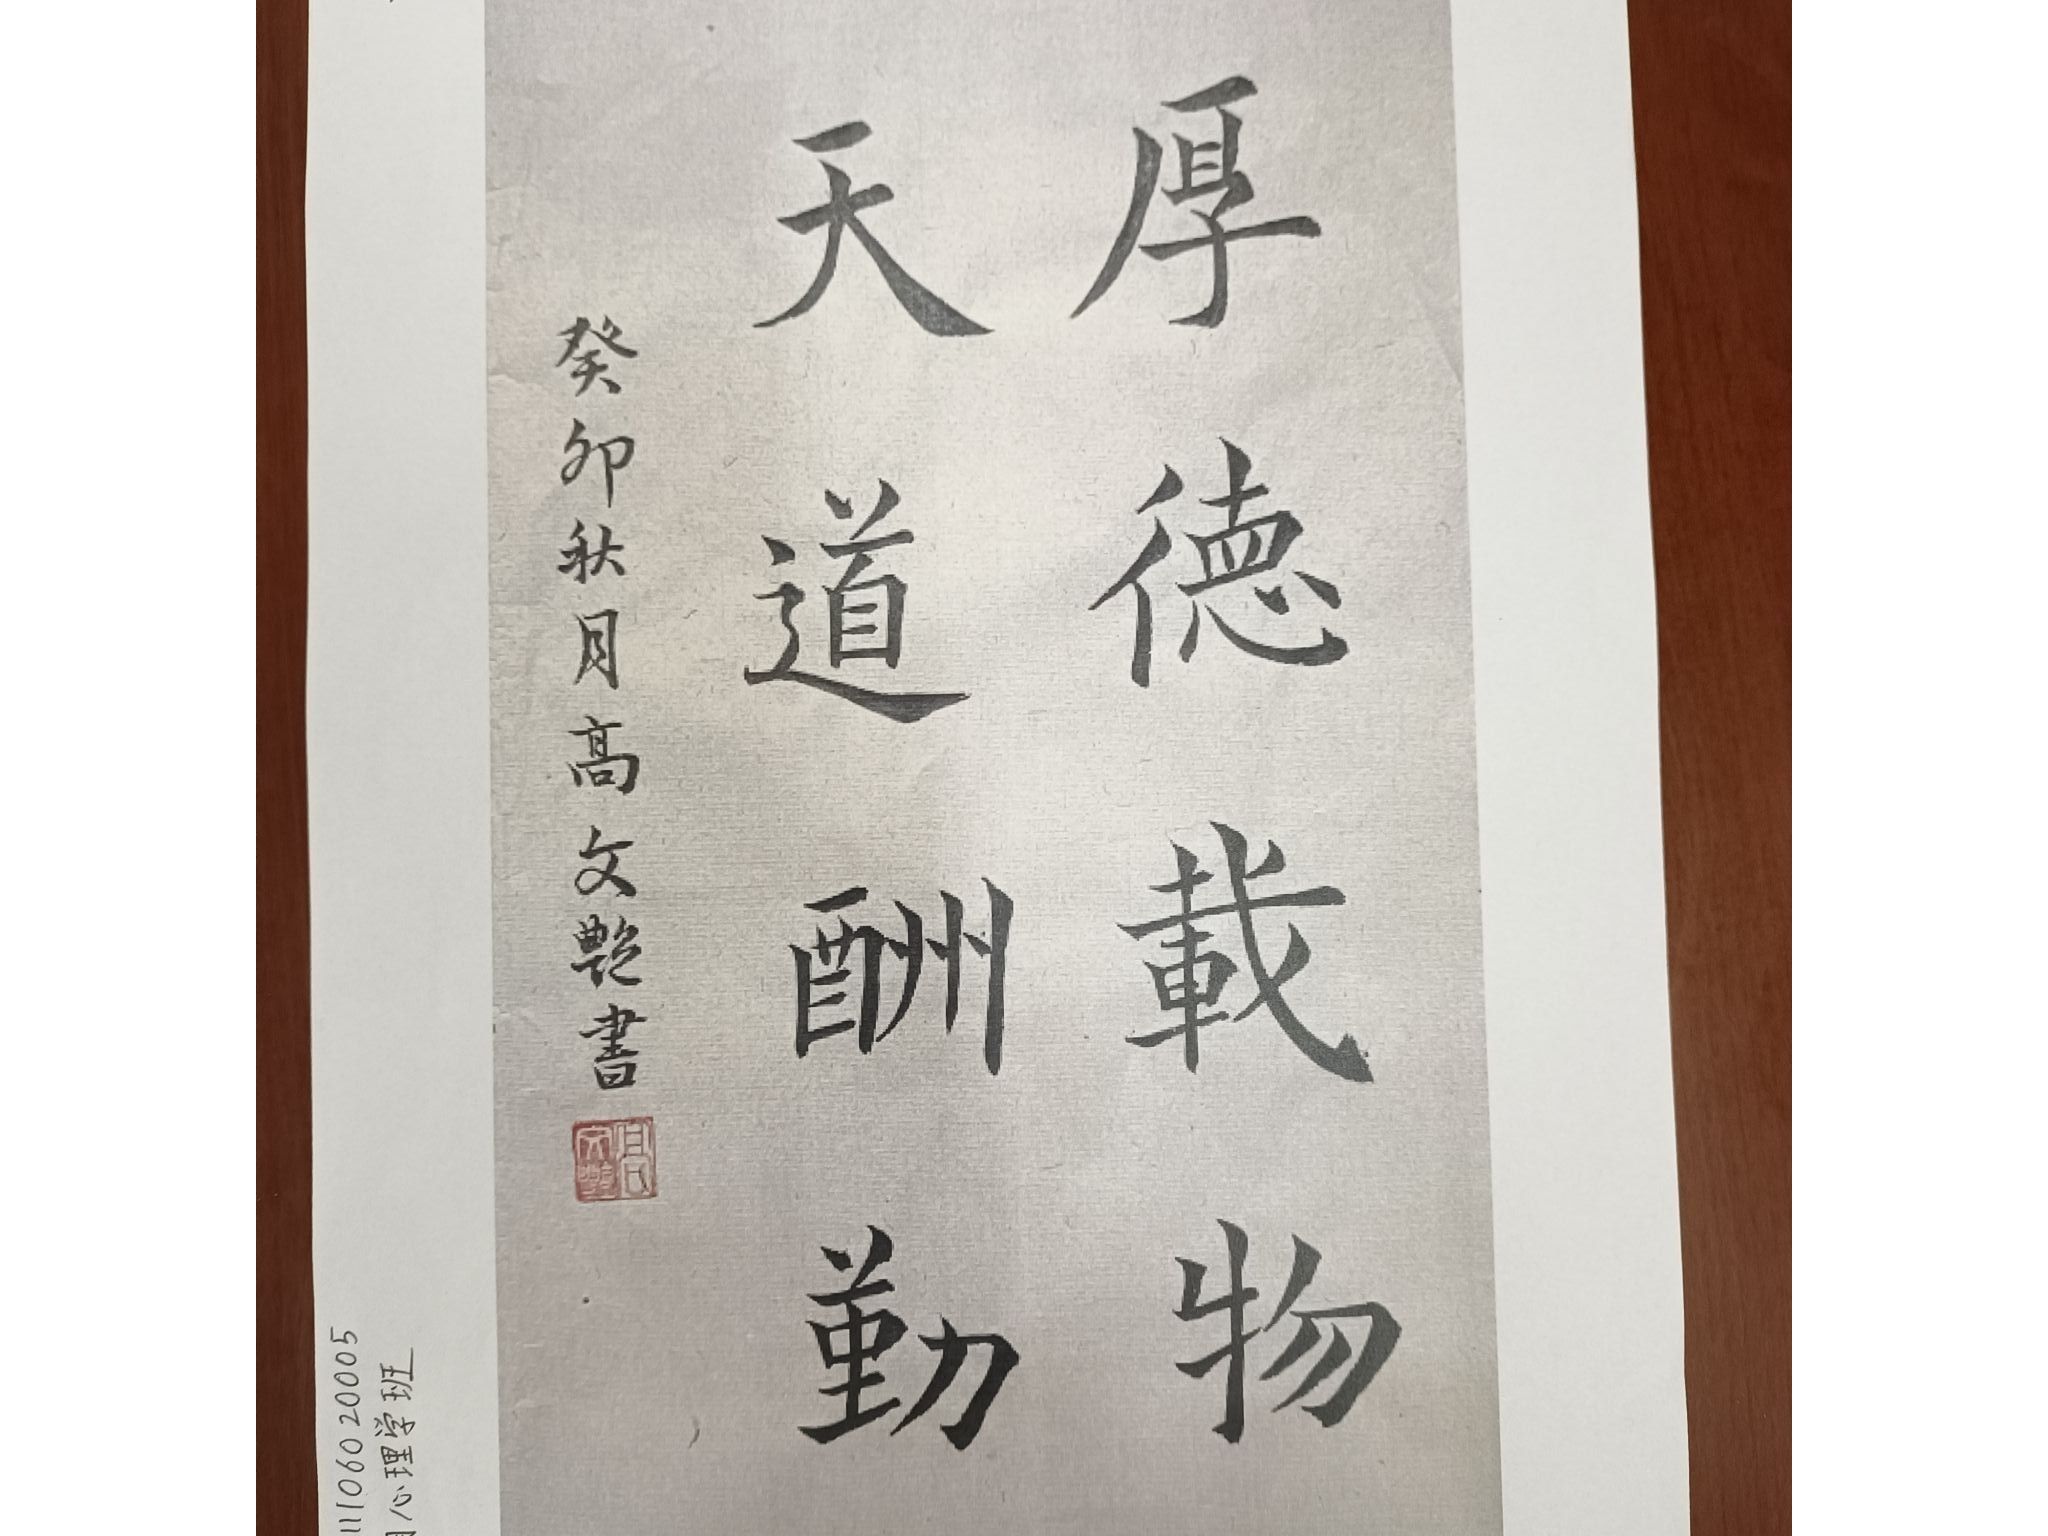 厚德載物
天道酬勤
癸卯秋月高文艷書
高氏文艷
11106020005
心理学班